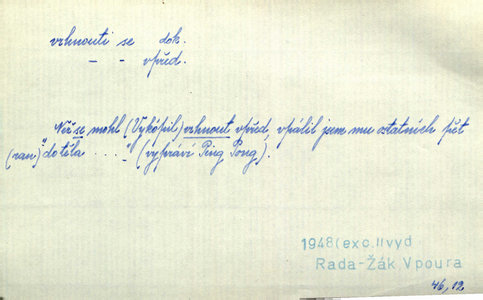 vrhnouti se dok.
- - vpřed.
Než se mohl (Vykópil) vrhnout vpřed, vpálil jsem mu ostatních pět
(ran) do těla . . . . " (vypráví Ping Pong).
1948(exc.IIvyd
Rada-Žák Vpoura
46,12